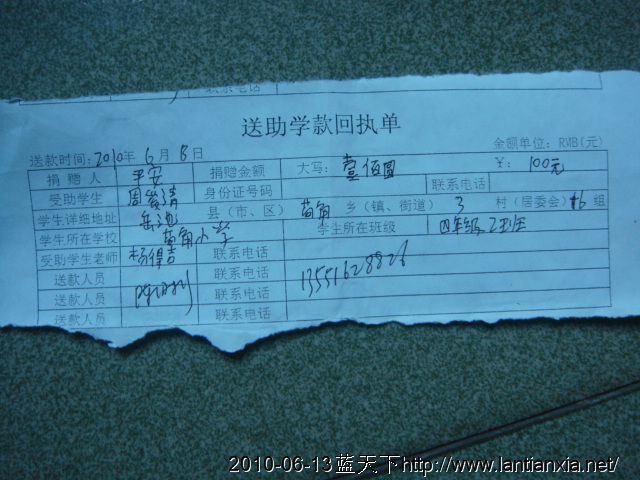 联系电话
送助学款回执单
送款时间：2010年 6月 8日 金额单位：RMB(元)
捐赠人 平安 捐赠金额 大写：壹佰圆 ¥：100元
受助学生 身份证号码 联系电话
学生详细地址 岳池 县（市、区） 苟角 乡（镇、街道） 3 村（居委会） 组
学生所在学校 苟角小学 学生所在班级 四年级乙班
受助学生老师 联系电话
送款人员 联系电话 13551628826
送款人员 联系电话
送款人员 联系电话
2010-06-13蓝天下http://www.lantianxia.net/